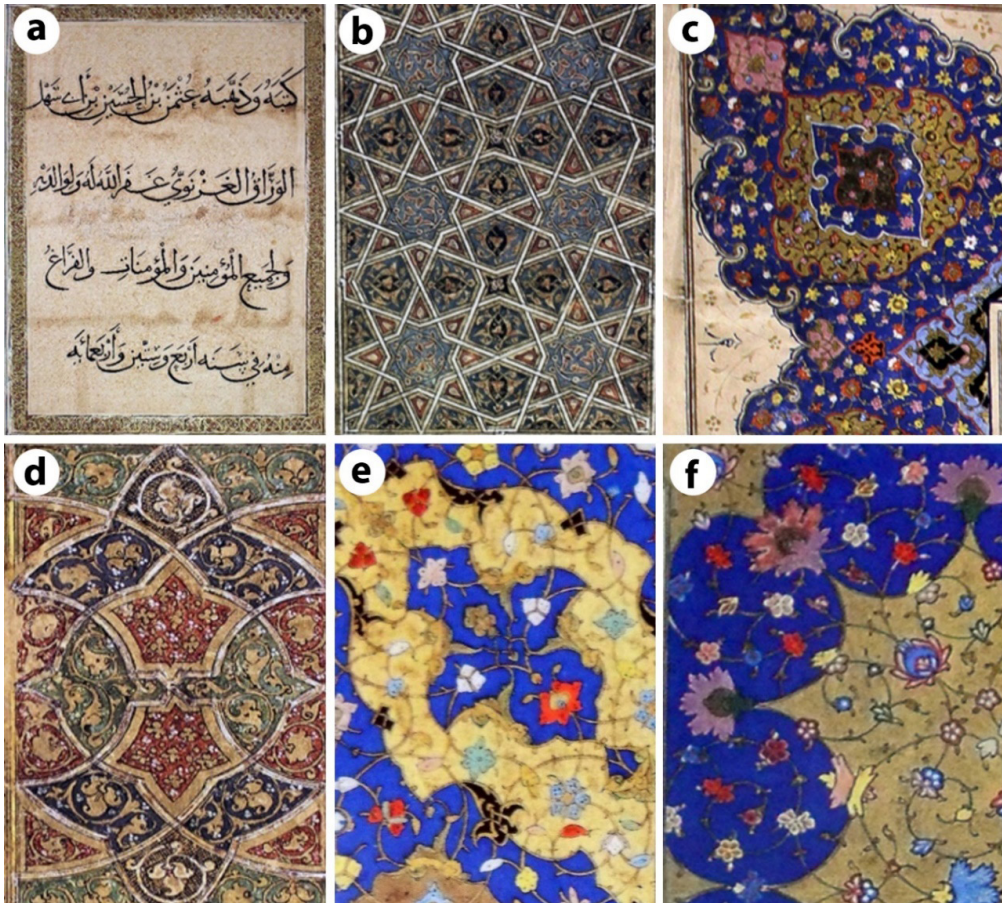 a
b
c
كتبه وذهبه عثمن بن الحسين بن أبي سهل
الوراق الغزنوي غفر الله له ولوالديه
ولجميع المؤمنين والمؤمنات والفراغ
منه في سنة أربع وستين وأربعمائة
d
e
f